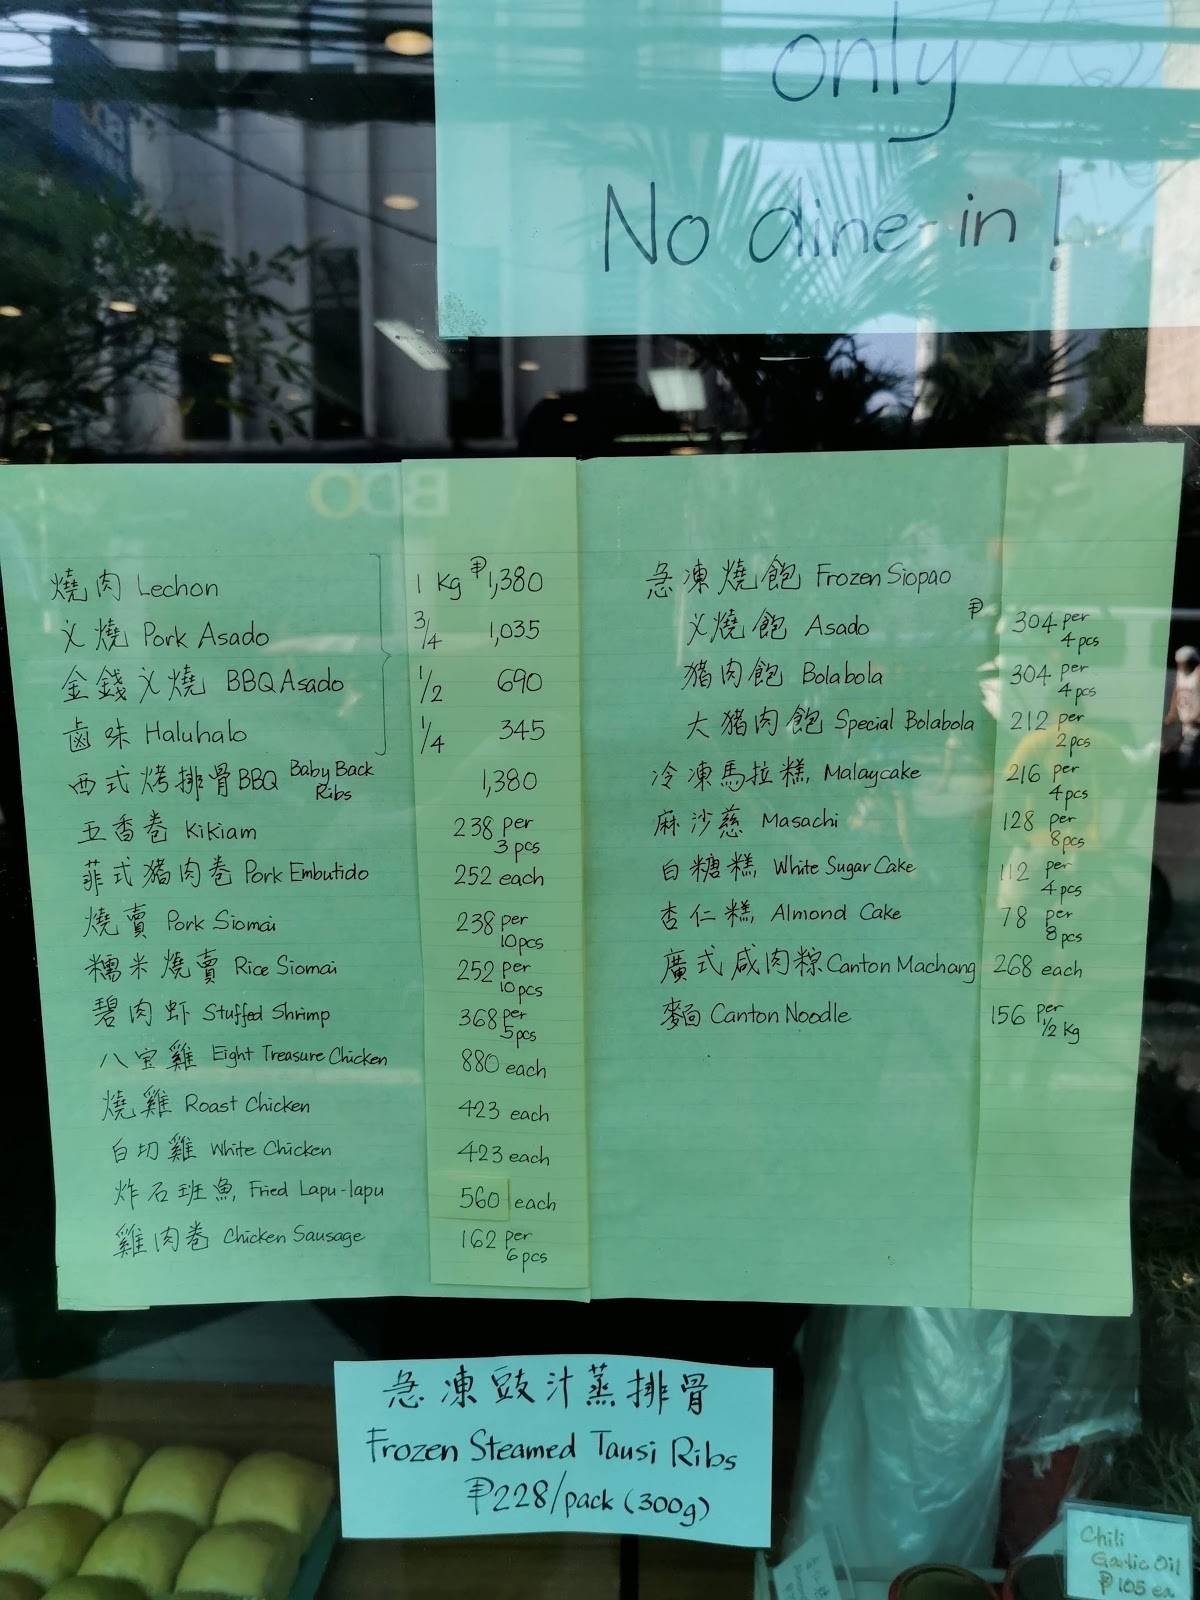 only
No dine-in!
燒肉 Lechon 1 Kg ₱1,380
乂燒 Pork Asado 3/4 1,035
金錢乂燒 BBQ Asado 1/2 690
鹵味 Haluhalo 1/4 345
西式烤排骨 BBQ Baby Back Ribs 1,380
五香卷 Kikiam 238 per 3 pcs
菲式豬肉卷 Pork Embutido 252 each
燒賣 Pork Siomai 238 per 10pcs
糯米燒賣 Rice Siomai 252 per 10pcs
碧肉虾 Stuffed Shrimp 368 per 5pcs
八宝雞 Eight Treasure Chicken 880 each
燒雞 Roast Chicken 423 each
白切雞 White Chicken 423 each
炸石班魚 Fried Lapu-lapu 560 each
雞肉卷 Chicken Sausage 162 per 6pcs
急凍燒飽 Frozen Siopao
乂燒飽 Asado ₱ 304 per 4pcs
豬肉飽 Bolabola 304 per 4pcs
大豬肉飽 Special Bolabola 212 per 2pcs
冷凍馬拉糕 Malaycake 216 per 4pcs
麻沙慈 Masachi 128 per 8pcs
白糖糕 White Sugar Cake 112 per 4pcs
杏仁糕 Almond Cake 78 per 8pcs
廣式咸肉粽 Canton Machang 268 each
麵 Canton Noodle 156 per 1/2 Kg
急凍豉汁蒸排骨
Frozen Steamed Tausi Ribs
₱228/pack (300g)
Chili
Garlic Oil
₱105 ea